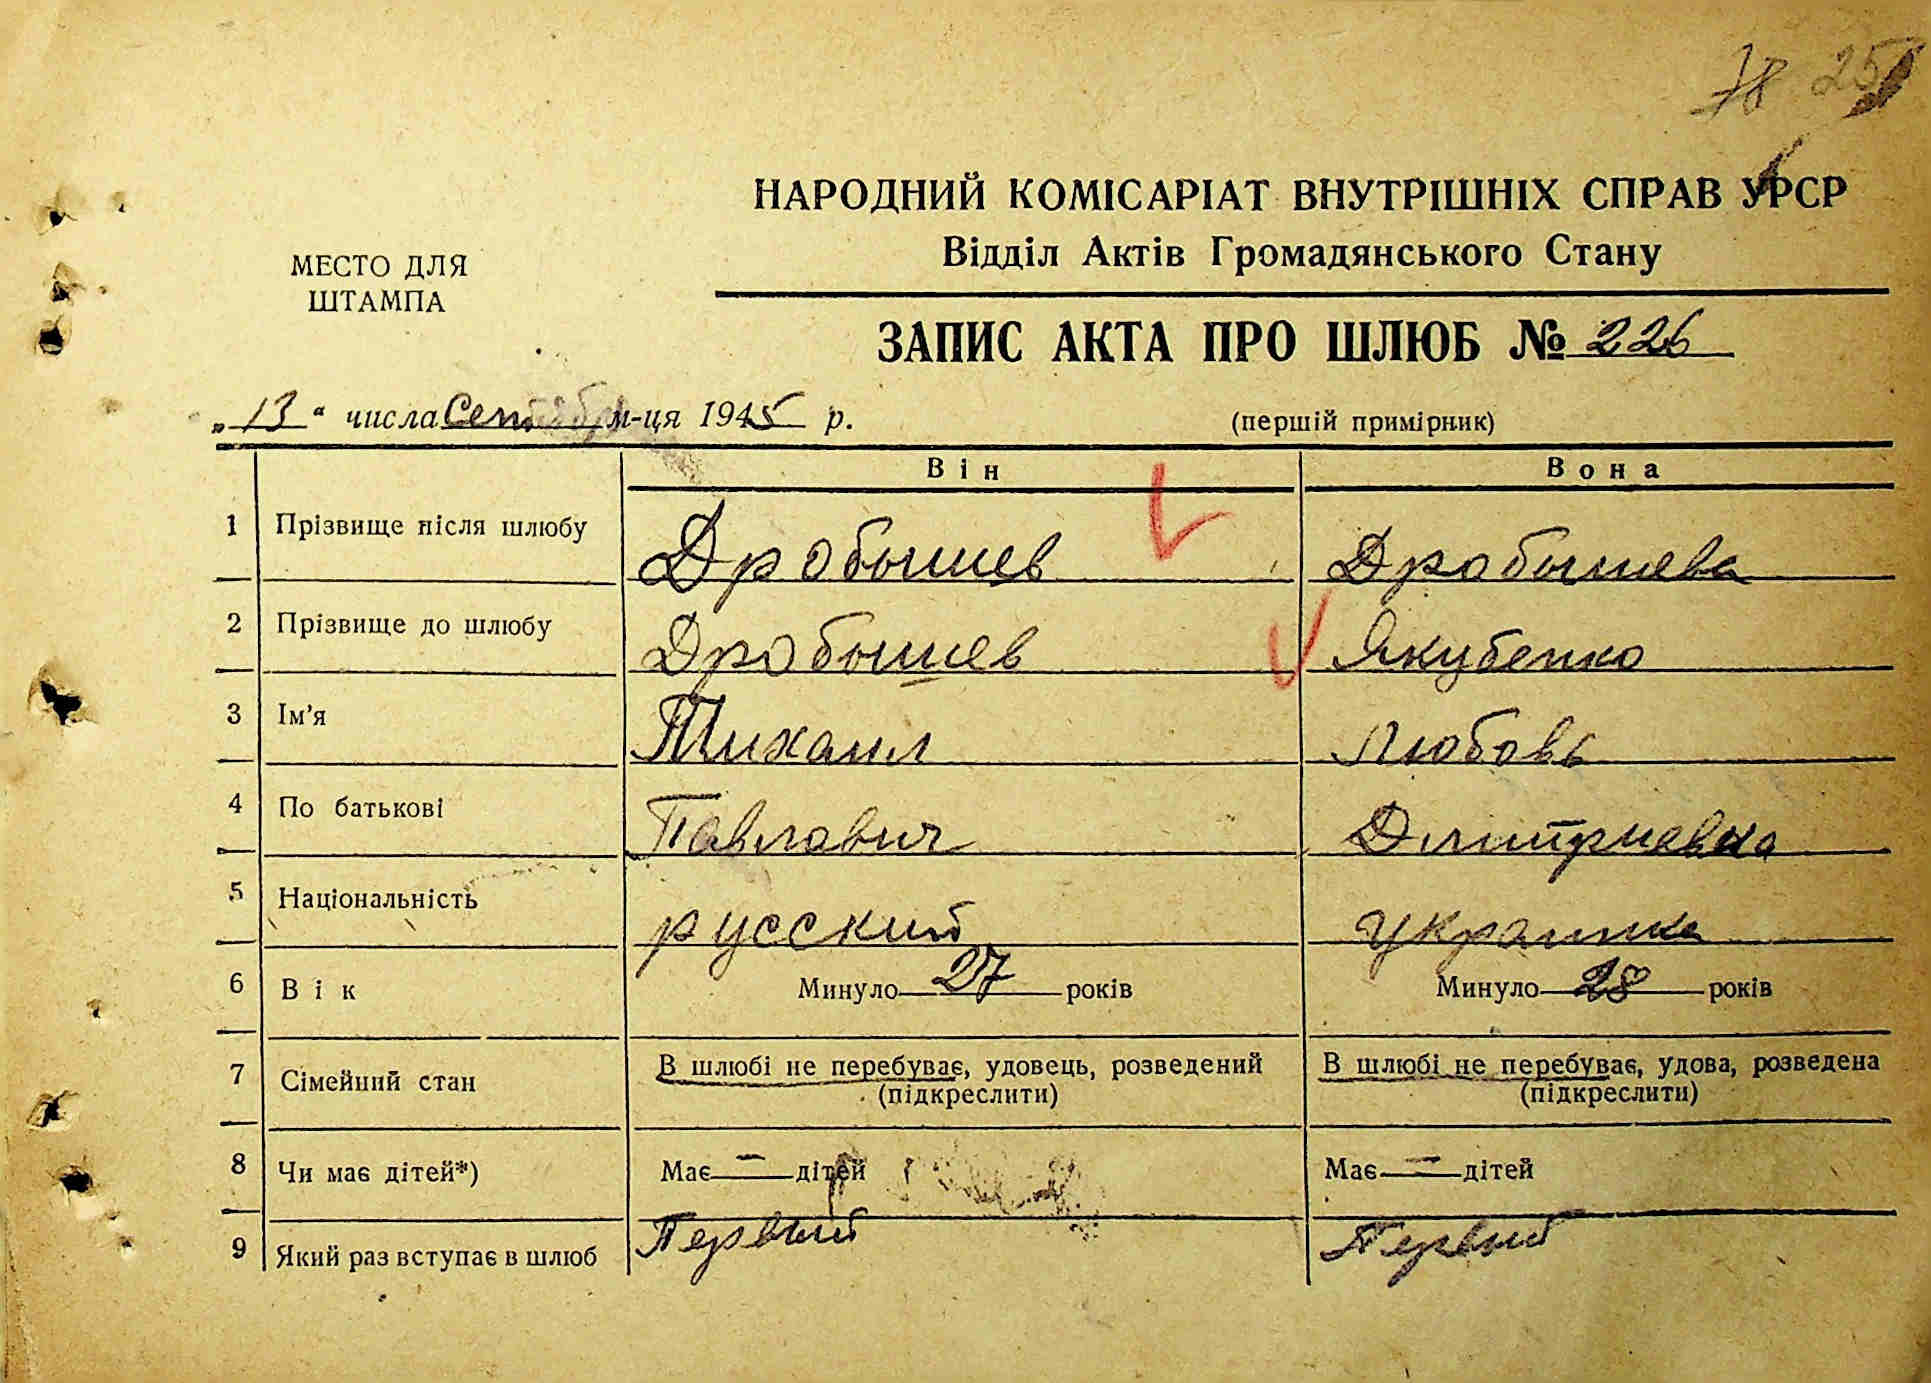 78 25
НАРОДНИЙ КОМІСАРІАТ ВНУТРІШНІХ СПРАВ УРСР
Відділ Актів Громадянського Стану
МЕСТО ДЛЯ
ШТАМПА
ЗАПИС АКТА ПРО ШЛЮБ № 226
„13“ числа Сентября м-ця 1945 р.
(першій примірник)
Він Вона
1 Прізвище після шлюбу Дробышев Дробышева
2 Прізвище до шлюбу Дробышев Якубенко
3 Ім'я Михаил Любовь
4 По батькові Павлович Дмитриевна
5 Національність русский украинка
6 Вік Минуло 27 років Минуло 28 років
7 Сімейний стан В шлюбі не перебуває, удовець, розведений В шлюбі не перебуває, удова, розведена
(підкреслити) (підкреслити)
8 Чи має дітей*) Має — дітей Має — дітей
9 Який раз вступає в шлюб Первый Первый